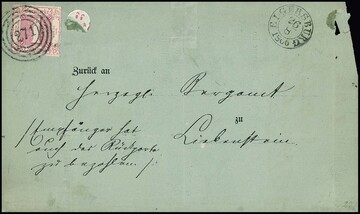 271
ELGERSBURG
26
8
1866
Zurück an
Herzogl. Bergamt
zu
Liebenstein.
/Empfänger hat
auch das Rückporto
zu bezahlen./